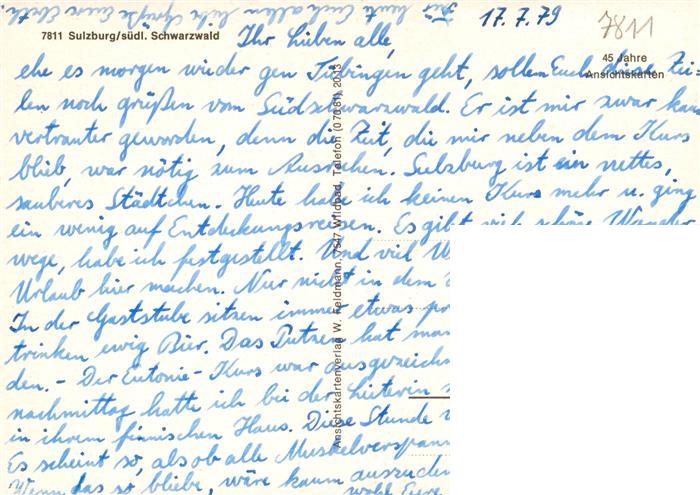 Für heute Euch allen liebe Grüße Eure
17.7.79
7811
7811 Sulzburg/südl. Schwarzwald
45 Jahre
Ansichtskarten
Ihr Lieben alle,
ehe es morgen wieder gen Tübingen geht, sollen Euch diese Zei-
len noch grüßen vom Südschwarzwald. Er ist mir zwar kaum
vertrauter geworden, denn die Zeit, die mir neben dem Kurs
blieb, war nötig zum Ausruhen. Sulzburg ist ein nettes,
sauberes Städtchen. Heute habe ich keinen Kurs mehr u. ging
ein wenig auf Entdeckungsreisen. Es gibt viel schöne Wander
wege, habe ich festgestellt. Und viel
Urlaub hier machen. Nur nicht in dem
In der Gaststube sitzen immer etwas
trinken ewig Bier. Das Putzen hat man
den. - Der Eutonie-Kurs war ausgezeich
nachmittag hatte ich bei der Leiterin
in ihrem finnischen Haus. Diese Stunde
Es scheint so, als ob alle Muskelverspann
Wenn das so bliebe, wäre kaum auszuden
wohl Eure
Ansichtskartenverlag W. Feldmann, 7547 Wildbad, Telefon (07081) 2013